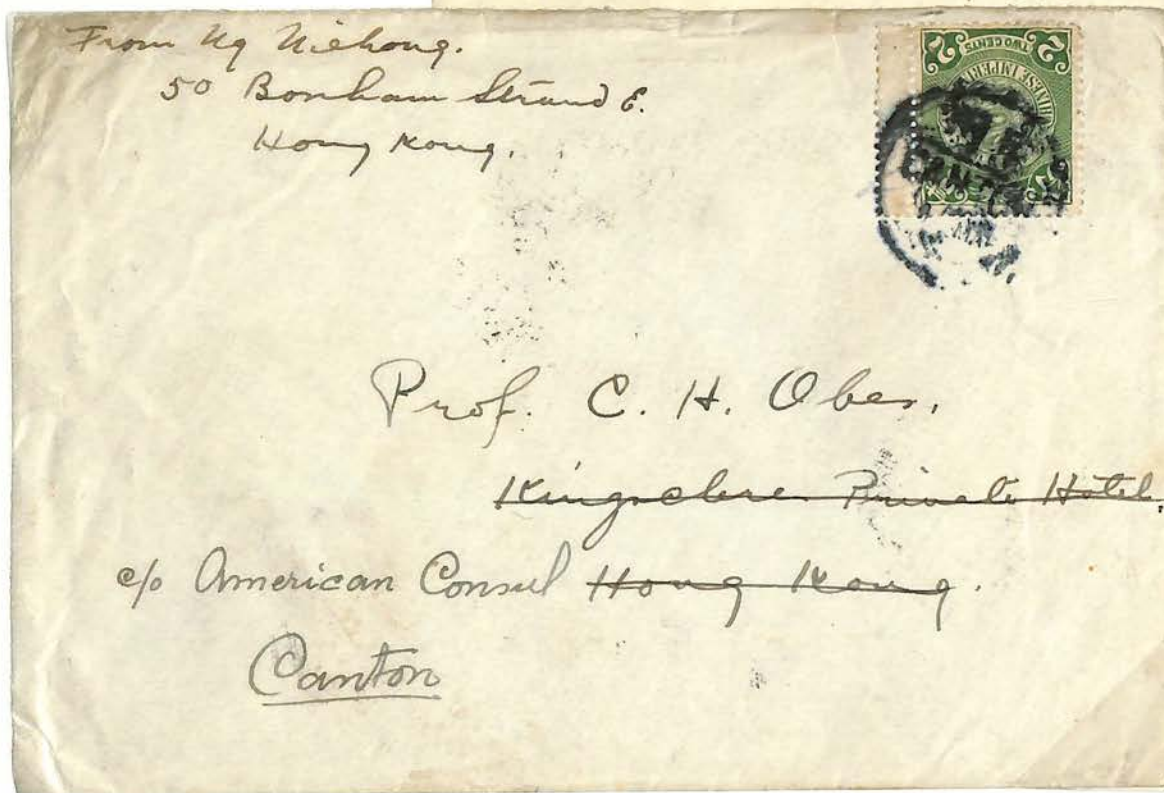 From Ng Niehong.
50 Bonham Strand E.
Hong Kong.
2 TWO CENTS 2
CHINESE IMPERI
CANTON
Prof. C. H. Ober.
Kingsclere Private Hotel,
c/o American Consul Hong Kong.
Canton